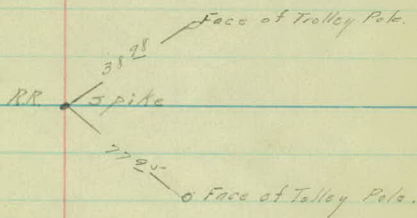 Face of Trolley Pole.
38 98
R.R. Spike
77 95
Face of Tolley Pole.